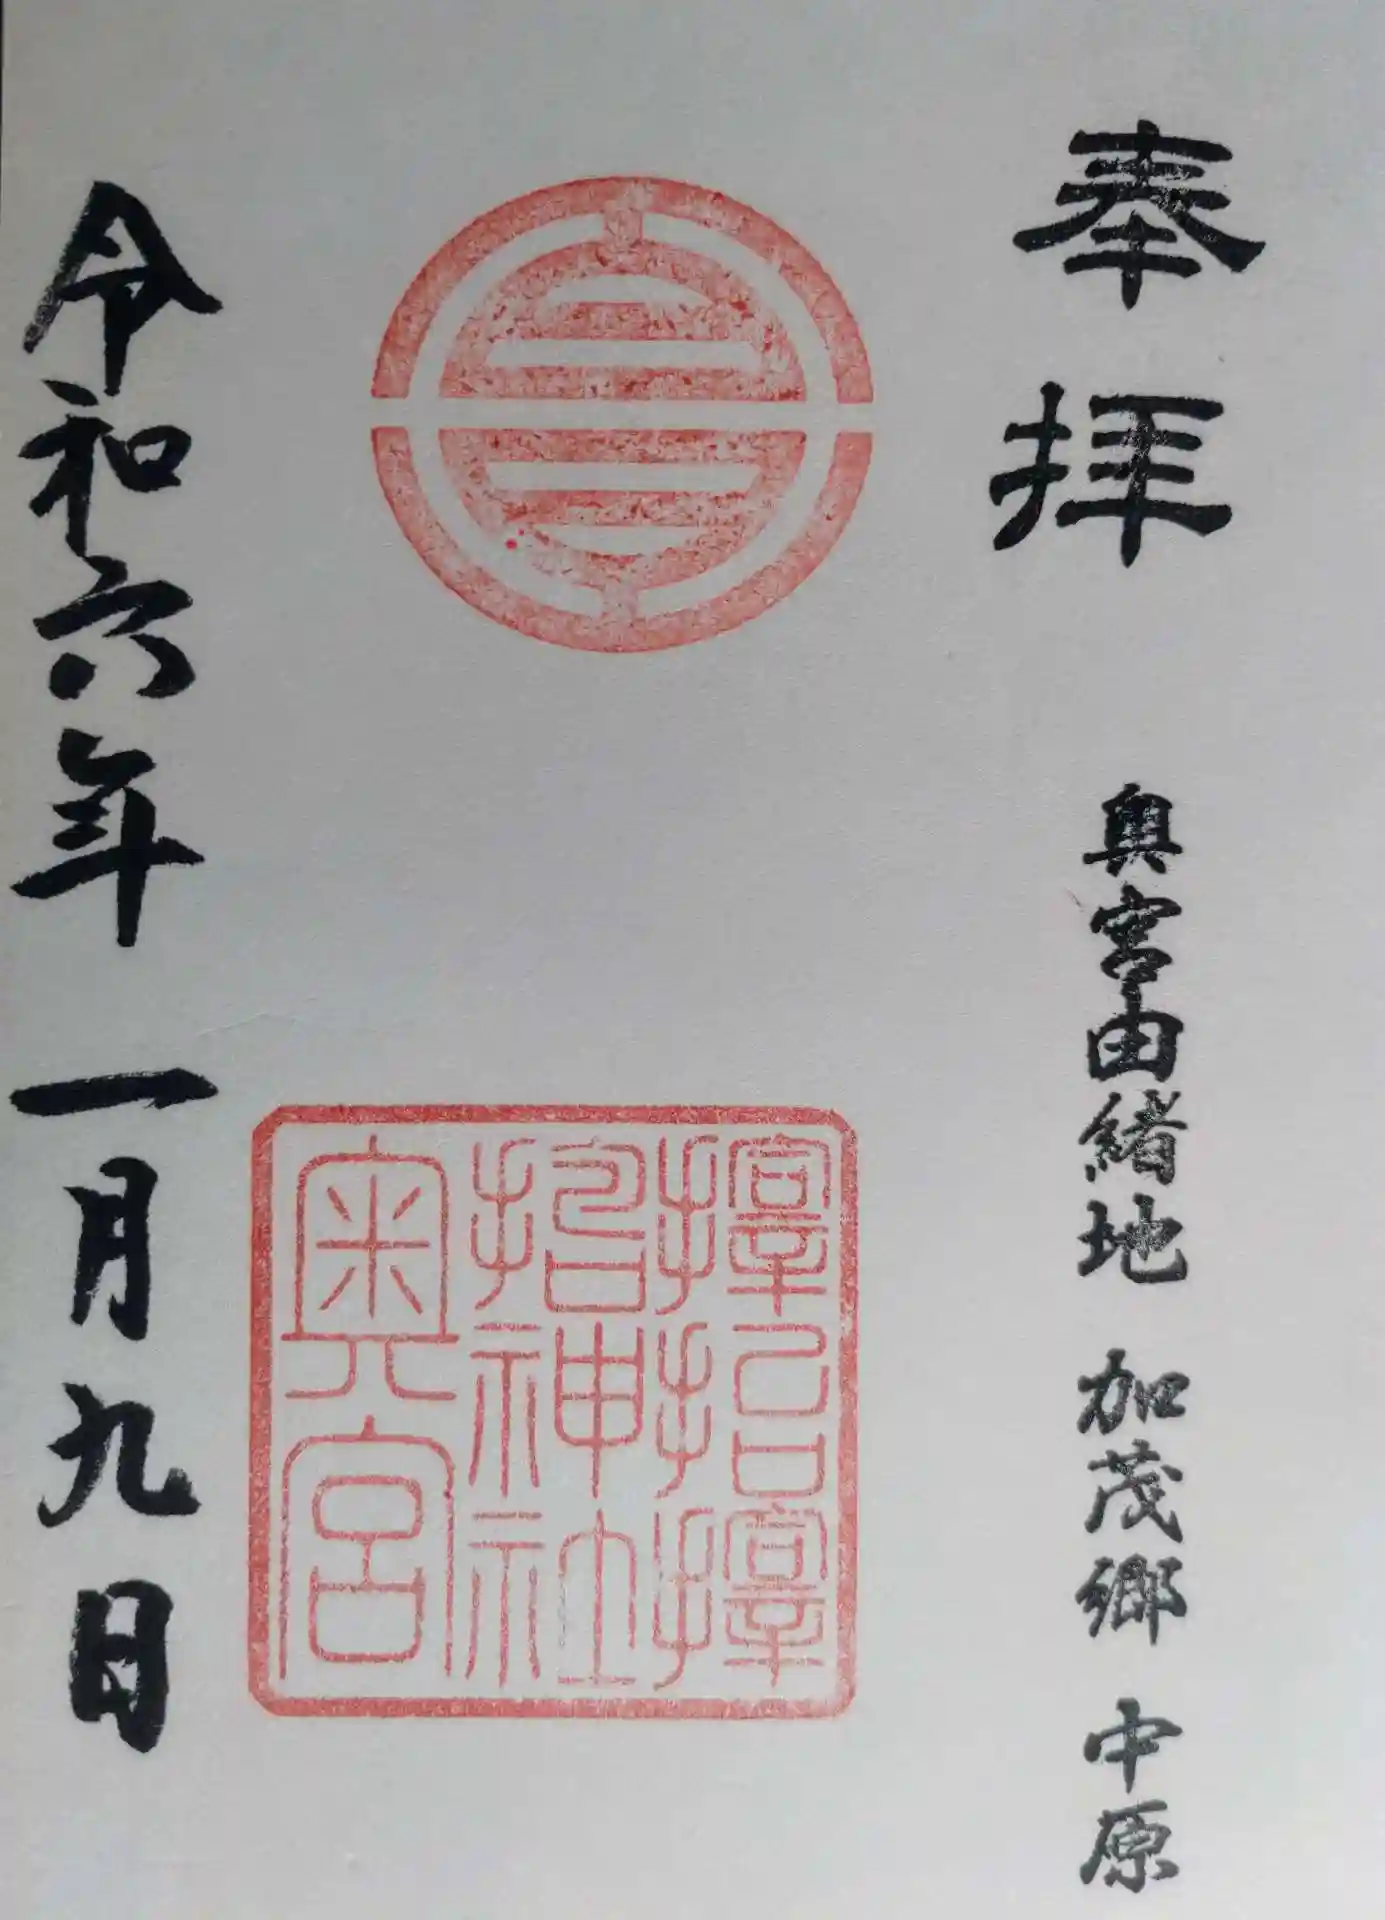 奉拝
奥宮由緒地 加茂郷 中原
神社
奥宮
令和六年 一月九日